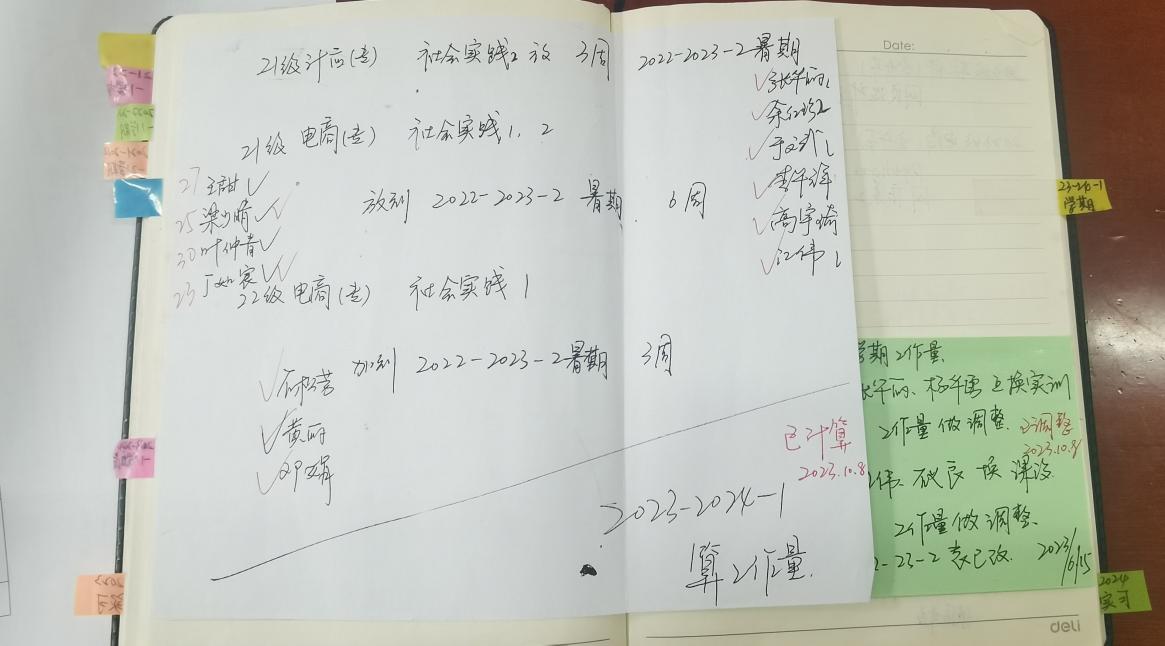 21级计应(专) 社会实践2 放 3周 2022-2023-2 暑期
张华丽1
余红珍2
21级 电商(专) 社会实践1、2
于文剑1
李华辉
高宇琦
江伟1
27 王甜
25 梁少晴
30 叶仲青
23 丁如宸
放到 2022-2023-2 暑期 6周
22级 电商(专) 社会实践1
加到 2022-2023-2暑期 3周
石松营
黄丽
邓娟
已计算
2023.10.8
2023-2024-1
算工作量.
Date:
学期工作量
华丽、杨华勇 互换实训
工作量做调整. 已调整
2023.10.8
伟 换 课设
工作量做调整.
-23-2 表已改. 2023/6/15
deli
23-24-1
学期
2024
实习